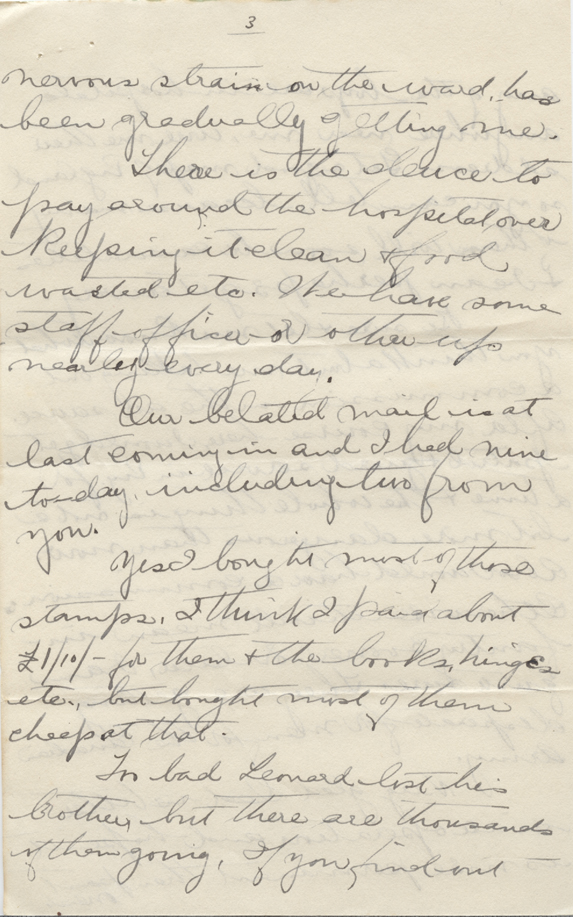 3
nervous strain on the ward, has
been gradually getting me.
There is the deuce to
pay around the hospital over
keeping it clean & food
wasted etc. We have some
staff-officer or other up
nearly every day.
Our belated mail is at
last coming in and I had nine
to-day, including two from
you.
Yes I bought most of those
stamps. I think I paid about
£1/10/- for them & the books, hinges
etc., but bought most of them
cheap at that.
Too bad Leonard lost his
brother, but there are thousands
of them going. If you find out